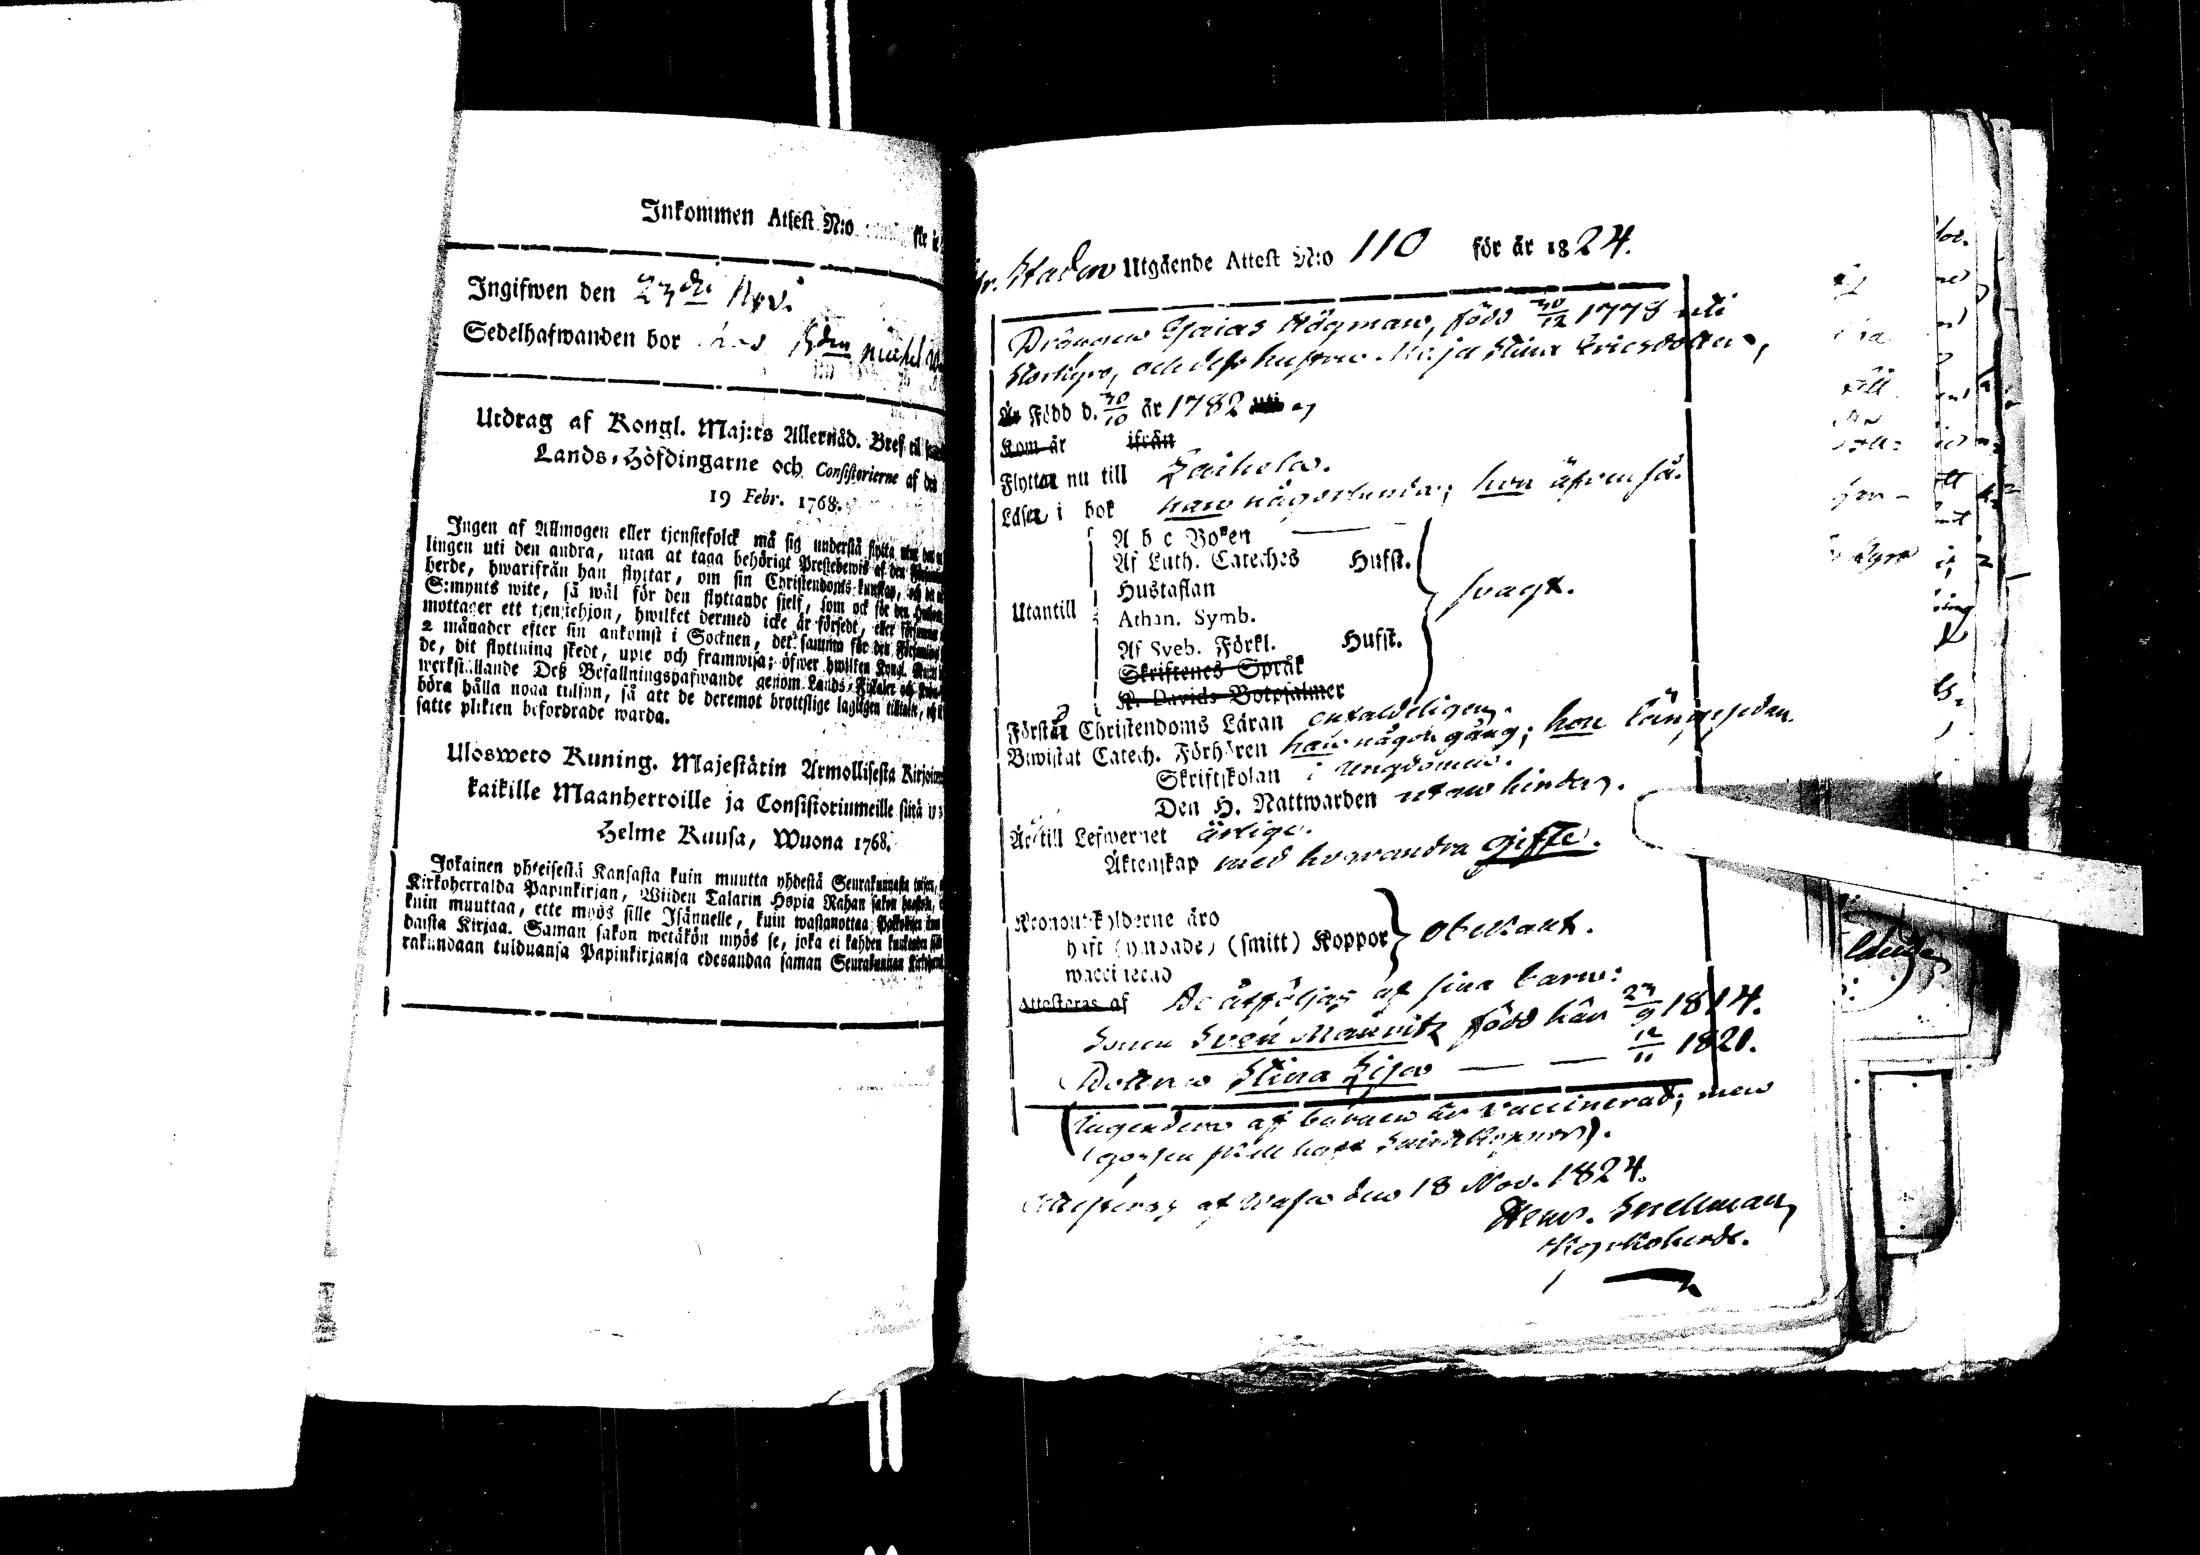 Inkommen Attest N:o för år
Ingifwen den 23de Nov.
Sedelhafwanden bor hos
Utdrag af Kongl. Maj:ts Allernåd. Bref til
Lands-Höfdingarne och Consistorierne af den
19 Febr. 1768.
Ingen af Allmogen eller tjenstefolck må sig understå flytta
lingen uti den andra, utan at taga behörigt Prestebewis af den
herde, hwarifrån han flyttar, om sin Christendoms-kunskap, och
S:mynts wite, så wäl för den flyttande sjelf, som ock för den
mottager ett tjenstehjon, hwilket dermed icke är försedt, eller
2 månader efter sin ankomst i Socknen, det samma för den
de, dit flyttning skedt, upte och framwisa; öfwer hwilken Kongl.
werkställande Deß Befallningshafwande genom Lands-Fiskaler och
böra hålla noga tillsyn, så att de deremot brottslige lagligen tilltalte,
satte plikten befordrade warda.
Ulosweto Kuning. Majestätin Armollisesta Kirjoituxesta
kaikille Maanherroille ja Consistoriumeille siitä 19
Helme Kuusa, Wuona 1768.
Jokainen yhteisestä Kansasta kuin muutta yhdestä Seurakunnasta toiseen,
Kirkoherralda Papinkirjan, Wiiden Talarin Hopia Rahan sakon haastolla,
kuin muuttaa, ette myös sille Isännelle, kuin wastanottaa
daista Kirjaa. Saman sakon wetäkön myös se, joka ei kahden kuukauden
rakundaan tulduansa Papinkirjansa edesandaa saman Seurakunnan
fr. Staden Utgående Attest N:o 110 för år 1824.
Drängen Esaias Högman, född 30/12 1778 uti
Storkyro, och dess hustru Maja Stina Ericsdotter,
Är Född d. 30/10 år 1782 uti
Kom år ifrån
Flyttar nu till Laihela.
Läser i bok han någorlunda; hon äfven så.
A b c Boken
Af Luth. Cateches Hufst.
Hustaflan
Utantill Athan. Symb. svagt.
Af Sveb. Förkl. Hufst.
Skriftenes Språk
K. Davids Botpsalmer
Förstår Christendoms Läran enfaldeligen.
Biwistat Catech. Förhören han någon gång; hon längesedan.
Skriftskolan i ungdomen.
Den H. Nattwarden utan hinder.
Är till Lefwernet ärlige.
Äktenskap med hvarandra gifte.
Kronoutskylderne äro
haft (ympade) (smitt) Koppor obekant.
waccinerad
Attesteras af De åtföljas af sina barn:
Sonen Sven Mauritz född här 23/9 1814.
Dottren Stina Lisa — — 12/11 1820.
(Ingendera af barnen är vaccinerad; men
gossen skall haft Smittkoppor).
Attesteras af Wasa den 18 Nov. 1824.
Henr. Snellman,
Kyrkoherde.